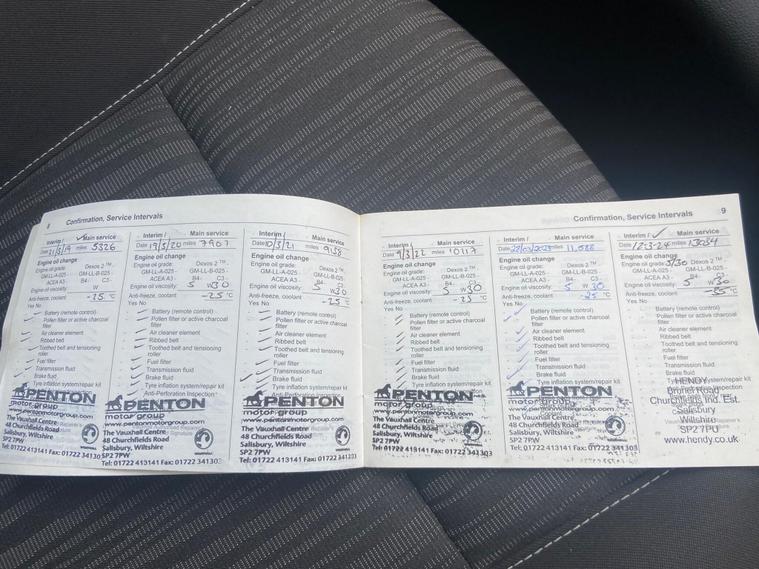 8 Confirmation, Service Intervals
Interim / ✓ Main service
Date 21/3/19 miles 5326
Engine oil change
Engine oil grade: Dexos 2™
GM-LL-A-025 - GM-LL-B-025
ACEA A3 - B4 C3
Engine oil viscosity: W
Anti-freeze, coolant -25 °C
Yes No
Battery (remote control)
Pollen filter or active charcoal
filter
Air cleaner element
Ribbed belt
Toothed belt and tensioning
roller
Fuel filter
Transmission fluid
Brake fluid
Tyre inflation system/repair kit
PENTON
motor group
www.pentonmotorgroup.com
The Vauxhall Centre
48 Churchfields Road
Salisbury, Wiltshire
SP2 7PW
Tel: 01722 413141 Fax: 01722 341303
Interim / Main service
Date 19/3/20 miles 7907
Engine oil change
Engine oil grade: Dexos 2™
GM-LL-A-025 - GM-LL-B-025
ACEA A3 - B4 C3
Engine oil viscosity: 5 W 30
Anti-freeze, coolant -25 °C
Yes No
Battery (remote control)
Pollen filter or active charcoal
filter
Air cleaner element
Ribbed belt
Toothed belt and tensioning
roller
Fuel filter
Transmission fluid
Brake fluid
Tyre inflation system/repair kit
Anti-Perforation Inspection
PENTON
motor group
www.pentonmotorgroup.com
The Vauxhall Centre
48 Churchfields Road
Salisbury, Wiltshire
SP2 7PW
Tel: 01722 413141 Fax: 01722 341303
Interim / Main service
Date 10/3/21 miles 9138
Engine oil change
Engine oil grade: Dexos 2™
GM-LL-A-025 - GM-LL-B-025
ACEA A3 - B4 C3
Engine oil viscosity: 5 W 30
Anti-freeze, coolant -25 °C
Yes No
Battery (remote control)
Pollen filter or active charcoal
filter
Air cleaner element
Ribbed belt
Toothed belt and tensioning
roller
Fuel filter
Transmission fluid
Brake fluid
Tyre inflation system/repair kit
PENTON
motor group
www.pentonmotorgroup.com
The Vauxhall Centre
48 Churchfields Road
Salisbury, Wiltshire
SP2 7PW
Tel: 01722 413141 Fax: 01722 341303
Confirmation, Service Intervals 9
Interim / Main service
Date 9/3/22 miles 10117
Engine oil change
Engine oil grade: Dexos 2™
GM-LL-A-025 - GM-LL-B-025
ACEA A3 - B4 C3
Engine oil viscosity: 5 W 30
Anti-freeze, coolant -25 °C
Yes No
Battery (remote control)
Pollen filter or active charcoal
filter
Air cleaner element
Ribbed belt
Toothed belt and tensioning
roller
Fuel filter
Transmission fluid
Brake fluid
Tyre inflation system/repair kit
PENTON
motor group
www.pentonmotorgroup.com
The Vauxhall Centre
48 Churchfields Road
Salisbury, Wiltshire
SP2 7PW
Tel: 01722 413141 Fax: 01722 341303
Interim / Main service
Date miles 11,588
Engine oil change
Engine oil grade: Dexos 2™
GM-LL-A-025 - GM-LL-B-025
ACEA A3 - B4 C3
Engine oil viscosity: 5 W 30
Anti-freeze, coolant -25 °C
Yes No
Battery (remote control)
Pollen filter or active charcoal
filter
Air cleaner element
Ribbed belt
Toothed belt and tensioning
roller
Fuel filter
Transmission fluid
Brake fluid
Tyre inflation system/repair kit
PENTON
motor group
www.pentonmotorgroup.com
The Vauxhall Centre
48 Churchfields Road
Salisbury, Wiltshire
SP2 7PW
Tel: 01722 413141 Fax: 01722 341303
Interim / ✓ Main service
Date 12-3-24 miles 13034
Engine oil change
Engine oil grade: 5/30 Dexos 2™
GM-LL-A-025 - GM-LL-B-025
ACEA A3 - B4 C3
Engine oil viscosity: 5 W 30
Anti-freeze, coolant °C
Yes No
Battery (remote control)
Pollen filter or active charcoal
filter
Air cleaner element
Ribbed belt
Toothed belt and tensioning
roller
Fuel filter
Transmission fluid
Brake fluid
Tyre inflation system/repair kit
HENDY
Brunel Road
Churchfields Ind. Est.
Salisbury
Wiltshire
SP2 7PU
www.hendy.co.uk